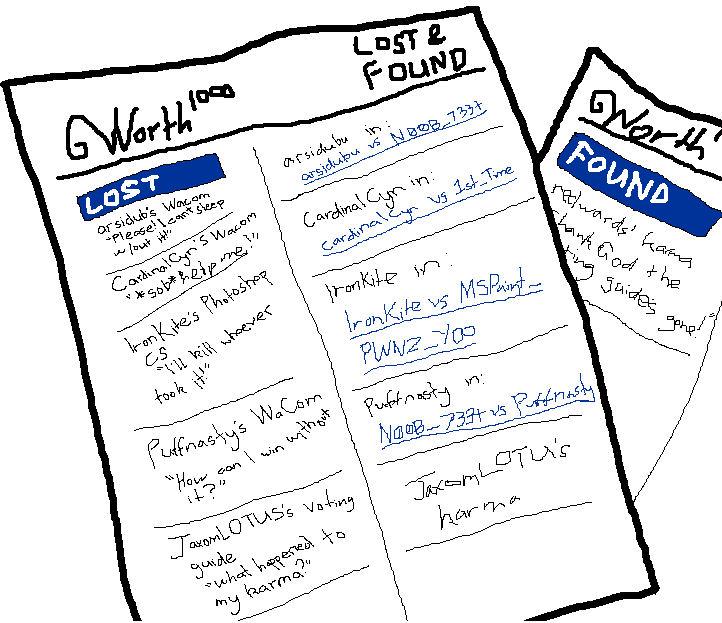 GWorth1000
LOST &
FOUND
LOST
arsidub's Wacom
"Please! I can't sleep
w/out it!"
CardinalCyn's Wacom
"*sob* help me!"
IronKite's Photoshop
CS
"I'll kill whoever
took it!"
Puffnasty's Wacom
"How can I win without
it?"
JaxomLOTUS's Voting
guide
"what happened to
my karma?"
arsidubu in:
arsidubu vs N00B_733t
CardinalCyn in:
CardinalCyn vs 1st_Time
IronKite in:
IronKite vs MSPaint_
PWNZ_Y00
Puffnasty in:
N00B_733t vs Puffnasty
JaxomLOTUS's
karma
GWorth
FOUND
redwards' karma
thank God the
ting guide's
gone!"